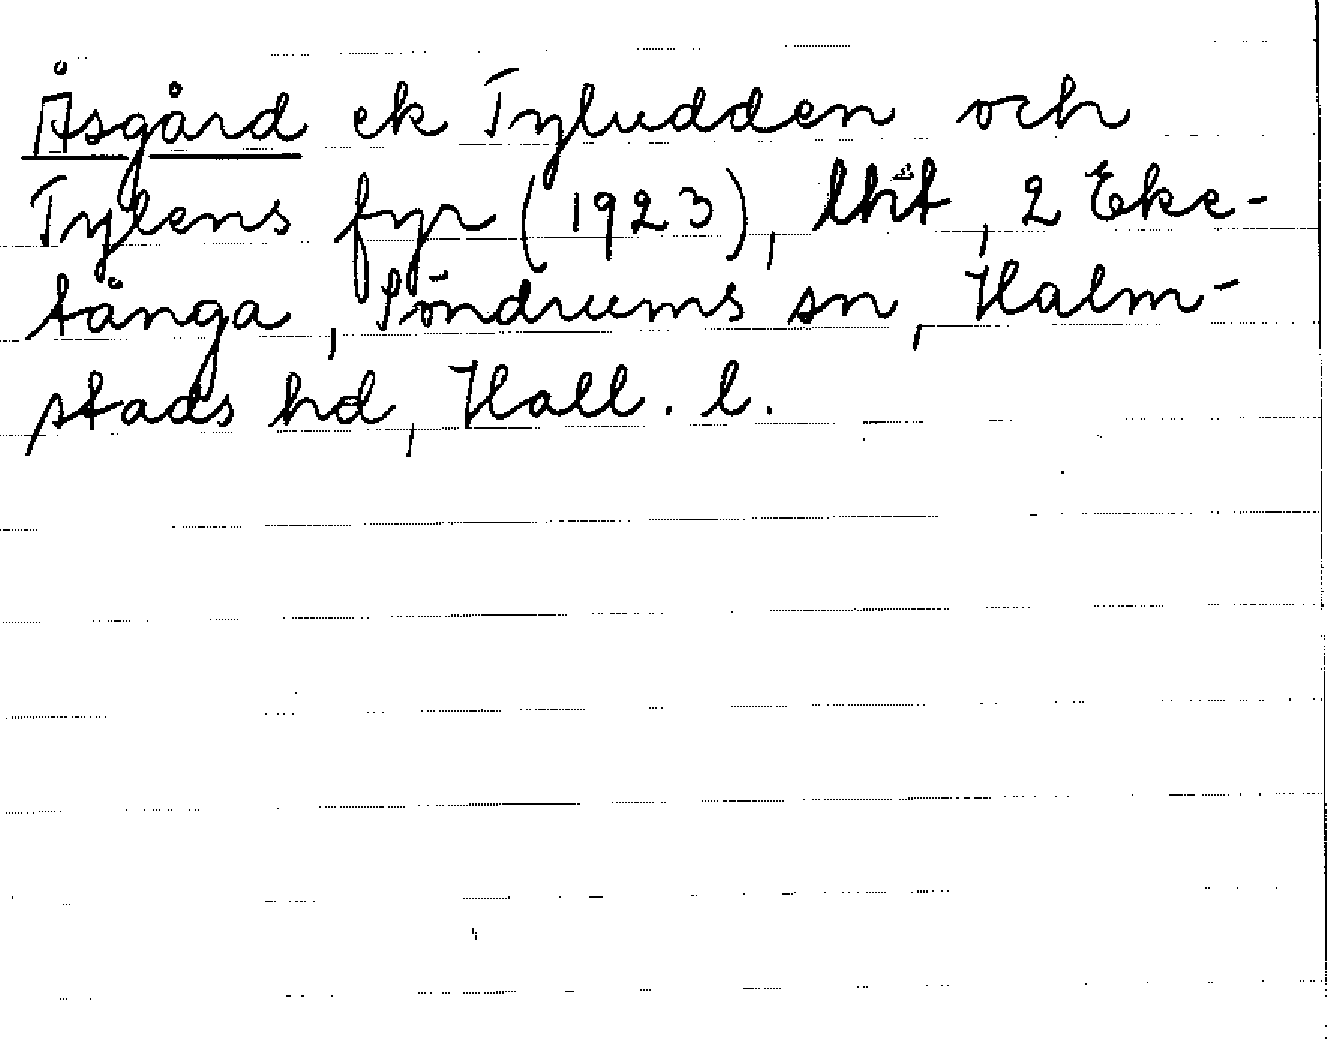 Åsgård ek Tyludden och
Tylens fyr (1923), lht, 2 Eke-
tånga, Söndrums sn, Halm-
stads hd, Hall. l.